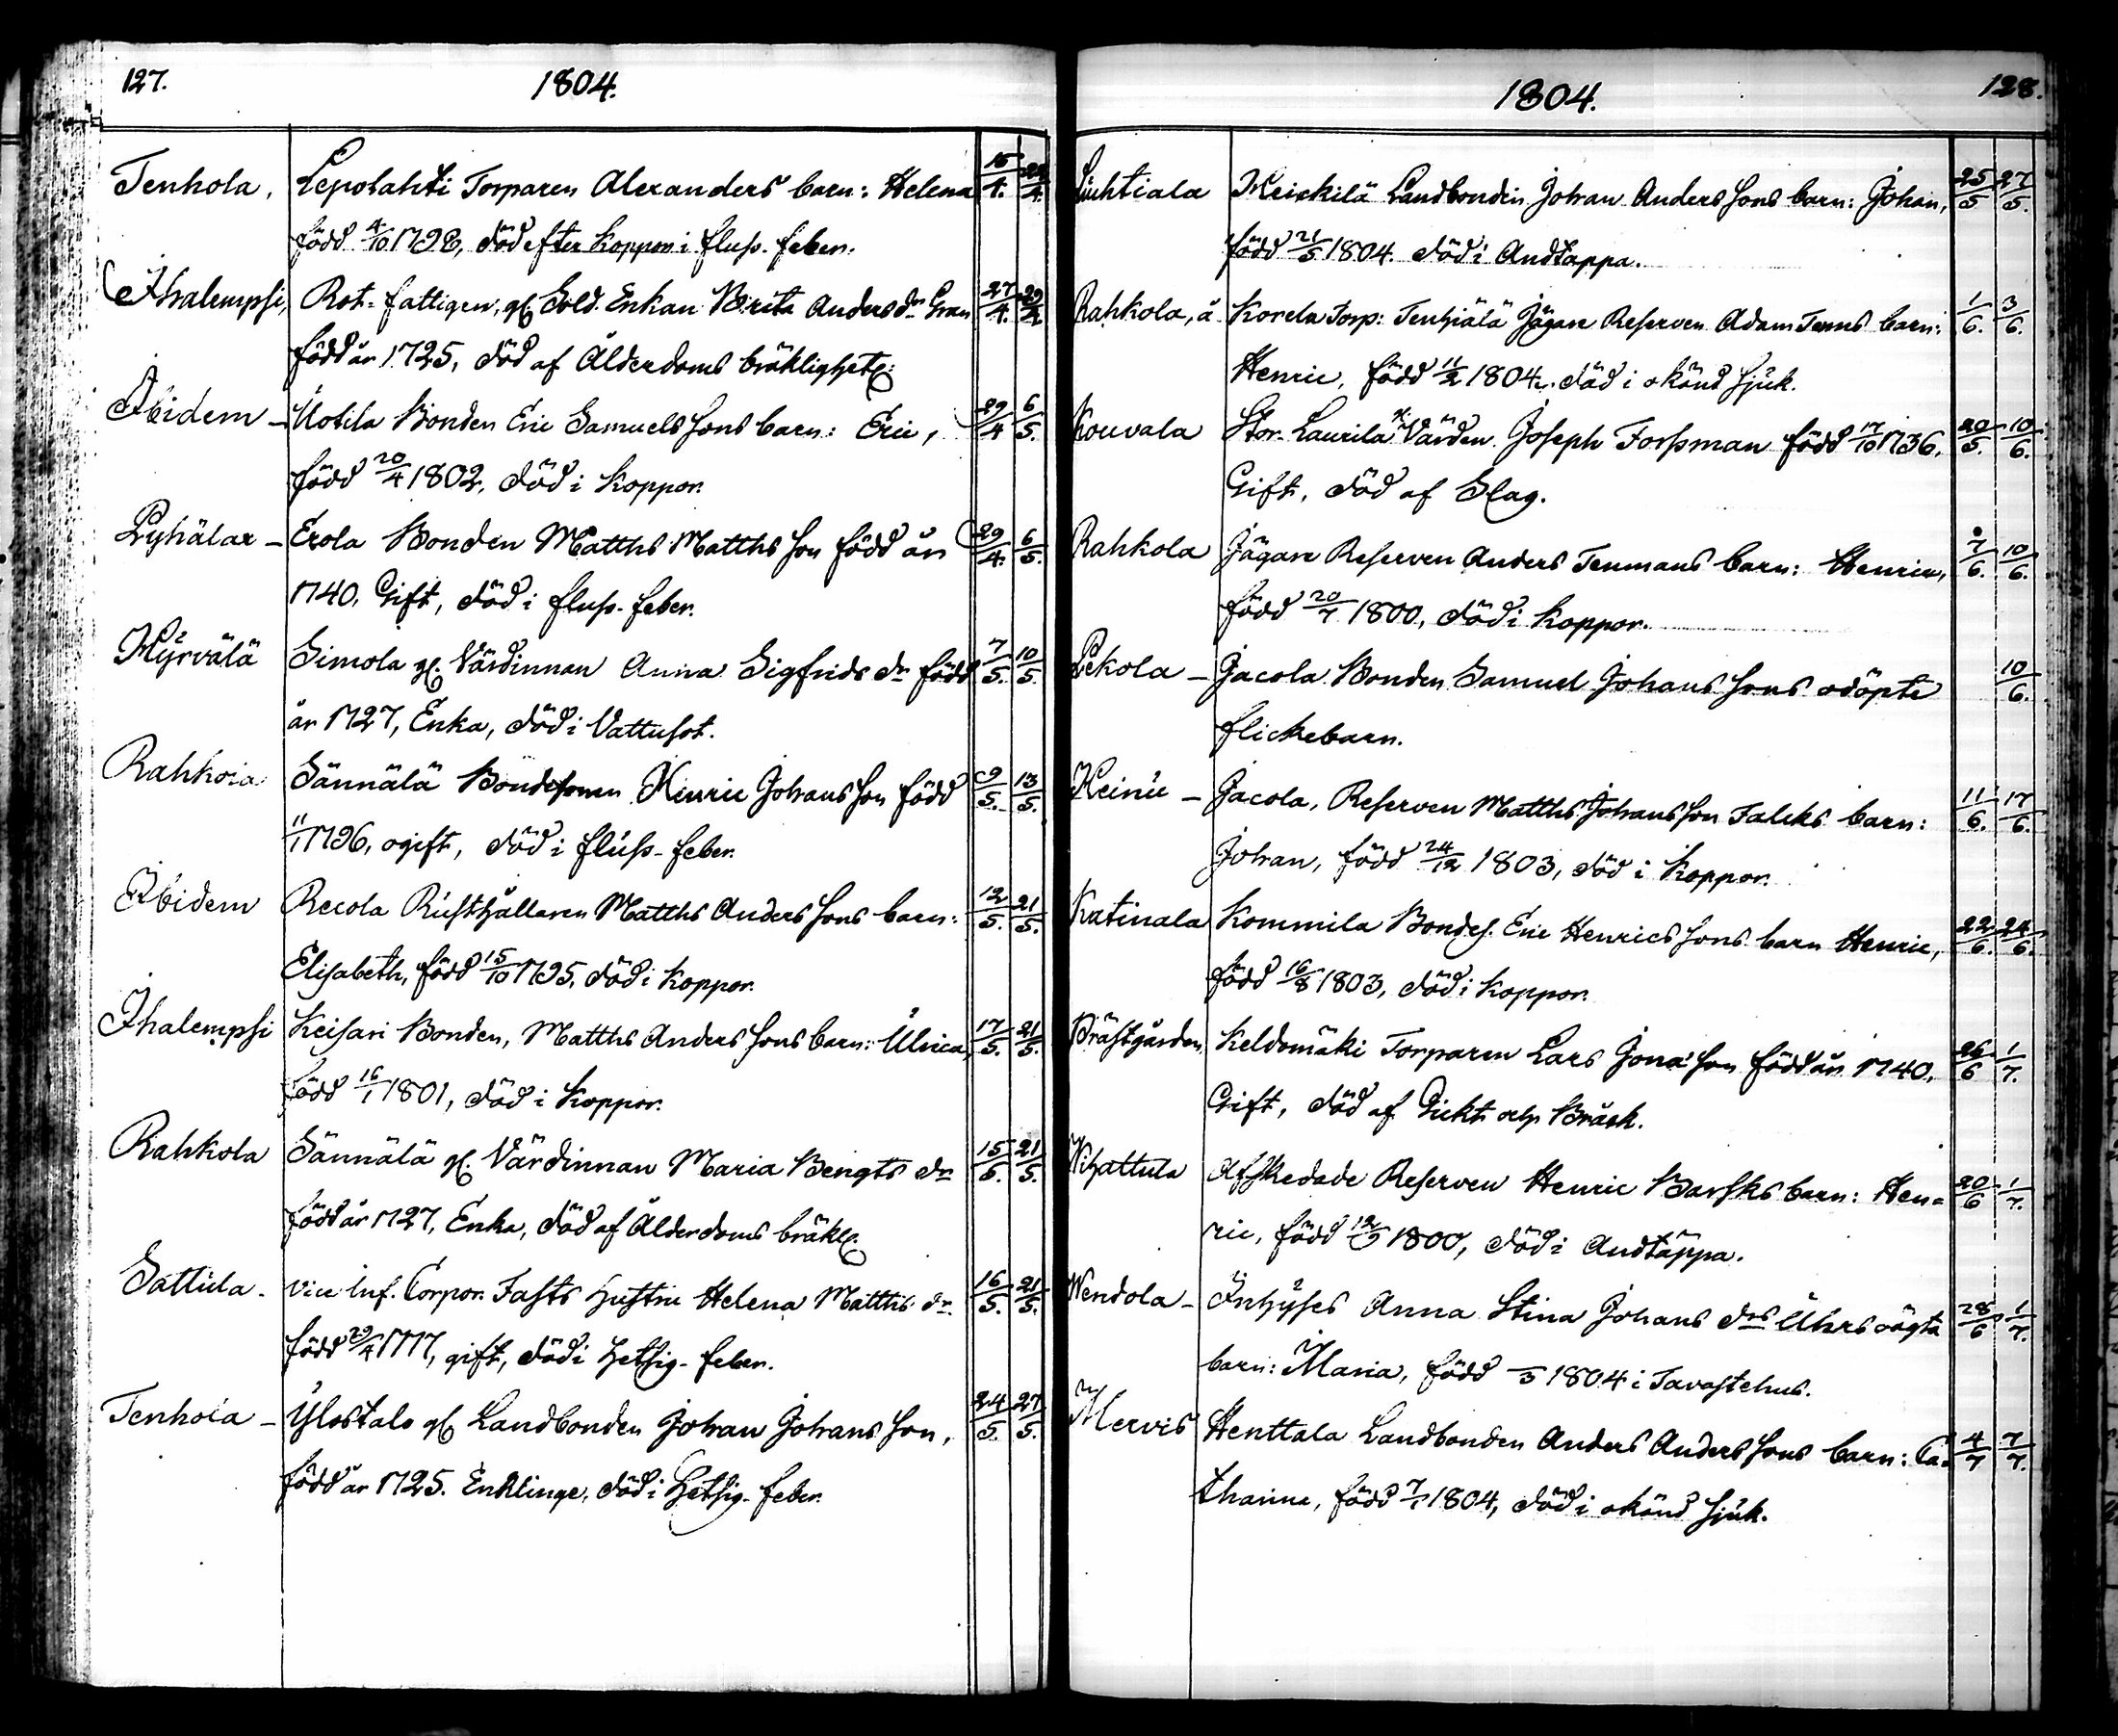 127.
1804.
Tenhola, Lepolahti Torparen Alexanders barn: Helena 15/4. 22/4.
född 4/10 1798, död efter koppor i fluss-feber.
Ihalempsi, Rot-fattigen, gl. Sold. Enkan Brita Anders dr Gran 27/4. 29/4.
född år 1725, död af Ålderdoms bräklighet.
Ibidem – Uotila Bonden Eric Samuels sons barn: Eric, 29/4 6/5.
född 20/4 1802, död i koppor.
Pyhälax – Erola Bonden Matths Matths son född år 29/4. 6/5.
1740, Gift, död i fluss-feber.
Hyrvälä Simola gl. Värdinnan Anna Sigfrids dr född 7/5. 10/5.
år 1727, Enka, död i Vattusot.
Rahkola Sännälä Bondesonen Henric Johans son född 9/5. 13/5.
11/1 1796, ogift, död i fluss-feber.
Ibidem Recola Rusthållaren Matths Anders sons barn: 12/5. 21/5.
Elisabeth, född 15/10 1795, död i koppor.
Ihalempsi Keisari Bonden, Matths Anders sons barn: Ulrica, 17/5. 21/5.
född 16/1 1801, död i koppor.
Rahkola Sännälä gl. Värdinnan Maria Bengts dr 15/5. 21/5.
född år 1727, Enka, död af Ålderdoms bräkl.
Sattula. Vice Inf. Corpor. Fasts hustru Helena Matths dr. 16/5. 21/5.
född 29/4 1777, gift, död i hetsig-feber.
Tenhola – Ylostalo gl. Landbonden Johan Johans son, 24/5. 27/5.
född år 1725. Enklinge, död i hetsig-feber.
1804.
128.
Luhtiala Meickilä Landbondin Johan Anders sons barn: Johan, 25/5 27/5.
född 21/5 1804. död i Andtäppa.
Rahkola, å Korela Torp: Tenhiälä Jägare Reserven Adam Tenns barn: 1/6. 3/6.
Henric, född 11/2 1804. död i okänd sjuk.
Kouvala Stor-Laurila Värden Joseph Forssman född 17/10 1736. 20/5. 10/6.
Gift, död af Slag.
Rahkola Jägare Reserven Anders Tenmans barn: Henric, 7/6. 10/6.
född 20/7 1800, död i koppor.
Pekola – Jacola Bonden Samuel Johans sons odöpte 10/6.
flickebarn.
Heinu – Jacola, Reserven Matths Johans son Falcks barn: 11/6. 17/6.
Johan, född 24/12 1803, död i koppor.
Katinala Kommila Bondes. Eric Henrics sons barn Henric, 22/6. 24/6.
född 16/8 1803, död i koppor.
Prästgården Keldomäki Torparen Lars Jonæ son född år 1740, 26/6 1/7.
Gift, död af Gickt och Bråck.
Vihattula Afskedade Reserven Henric Barsks barn: Hen= 20/6 1/7.
ric, född 12/9 1800, död i Andtäppa.
Wendola – Inhyses Anna Stina Johans drs Uhrs oägta 28/6 1/7.
barn: Maria, född –/3 1804 i Tavastehus.
Mervis Henttala Landbonden Anders Anders sons barn: Ca= 4/7 7/7.
tharina, född 7/1 1804, död i okänd sjuk.